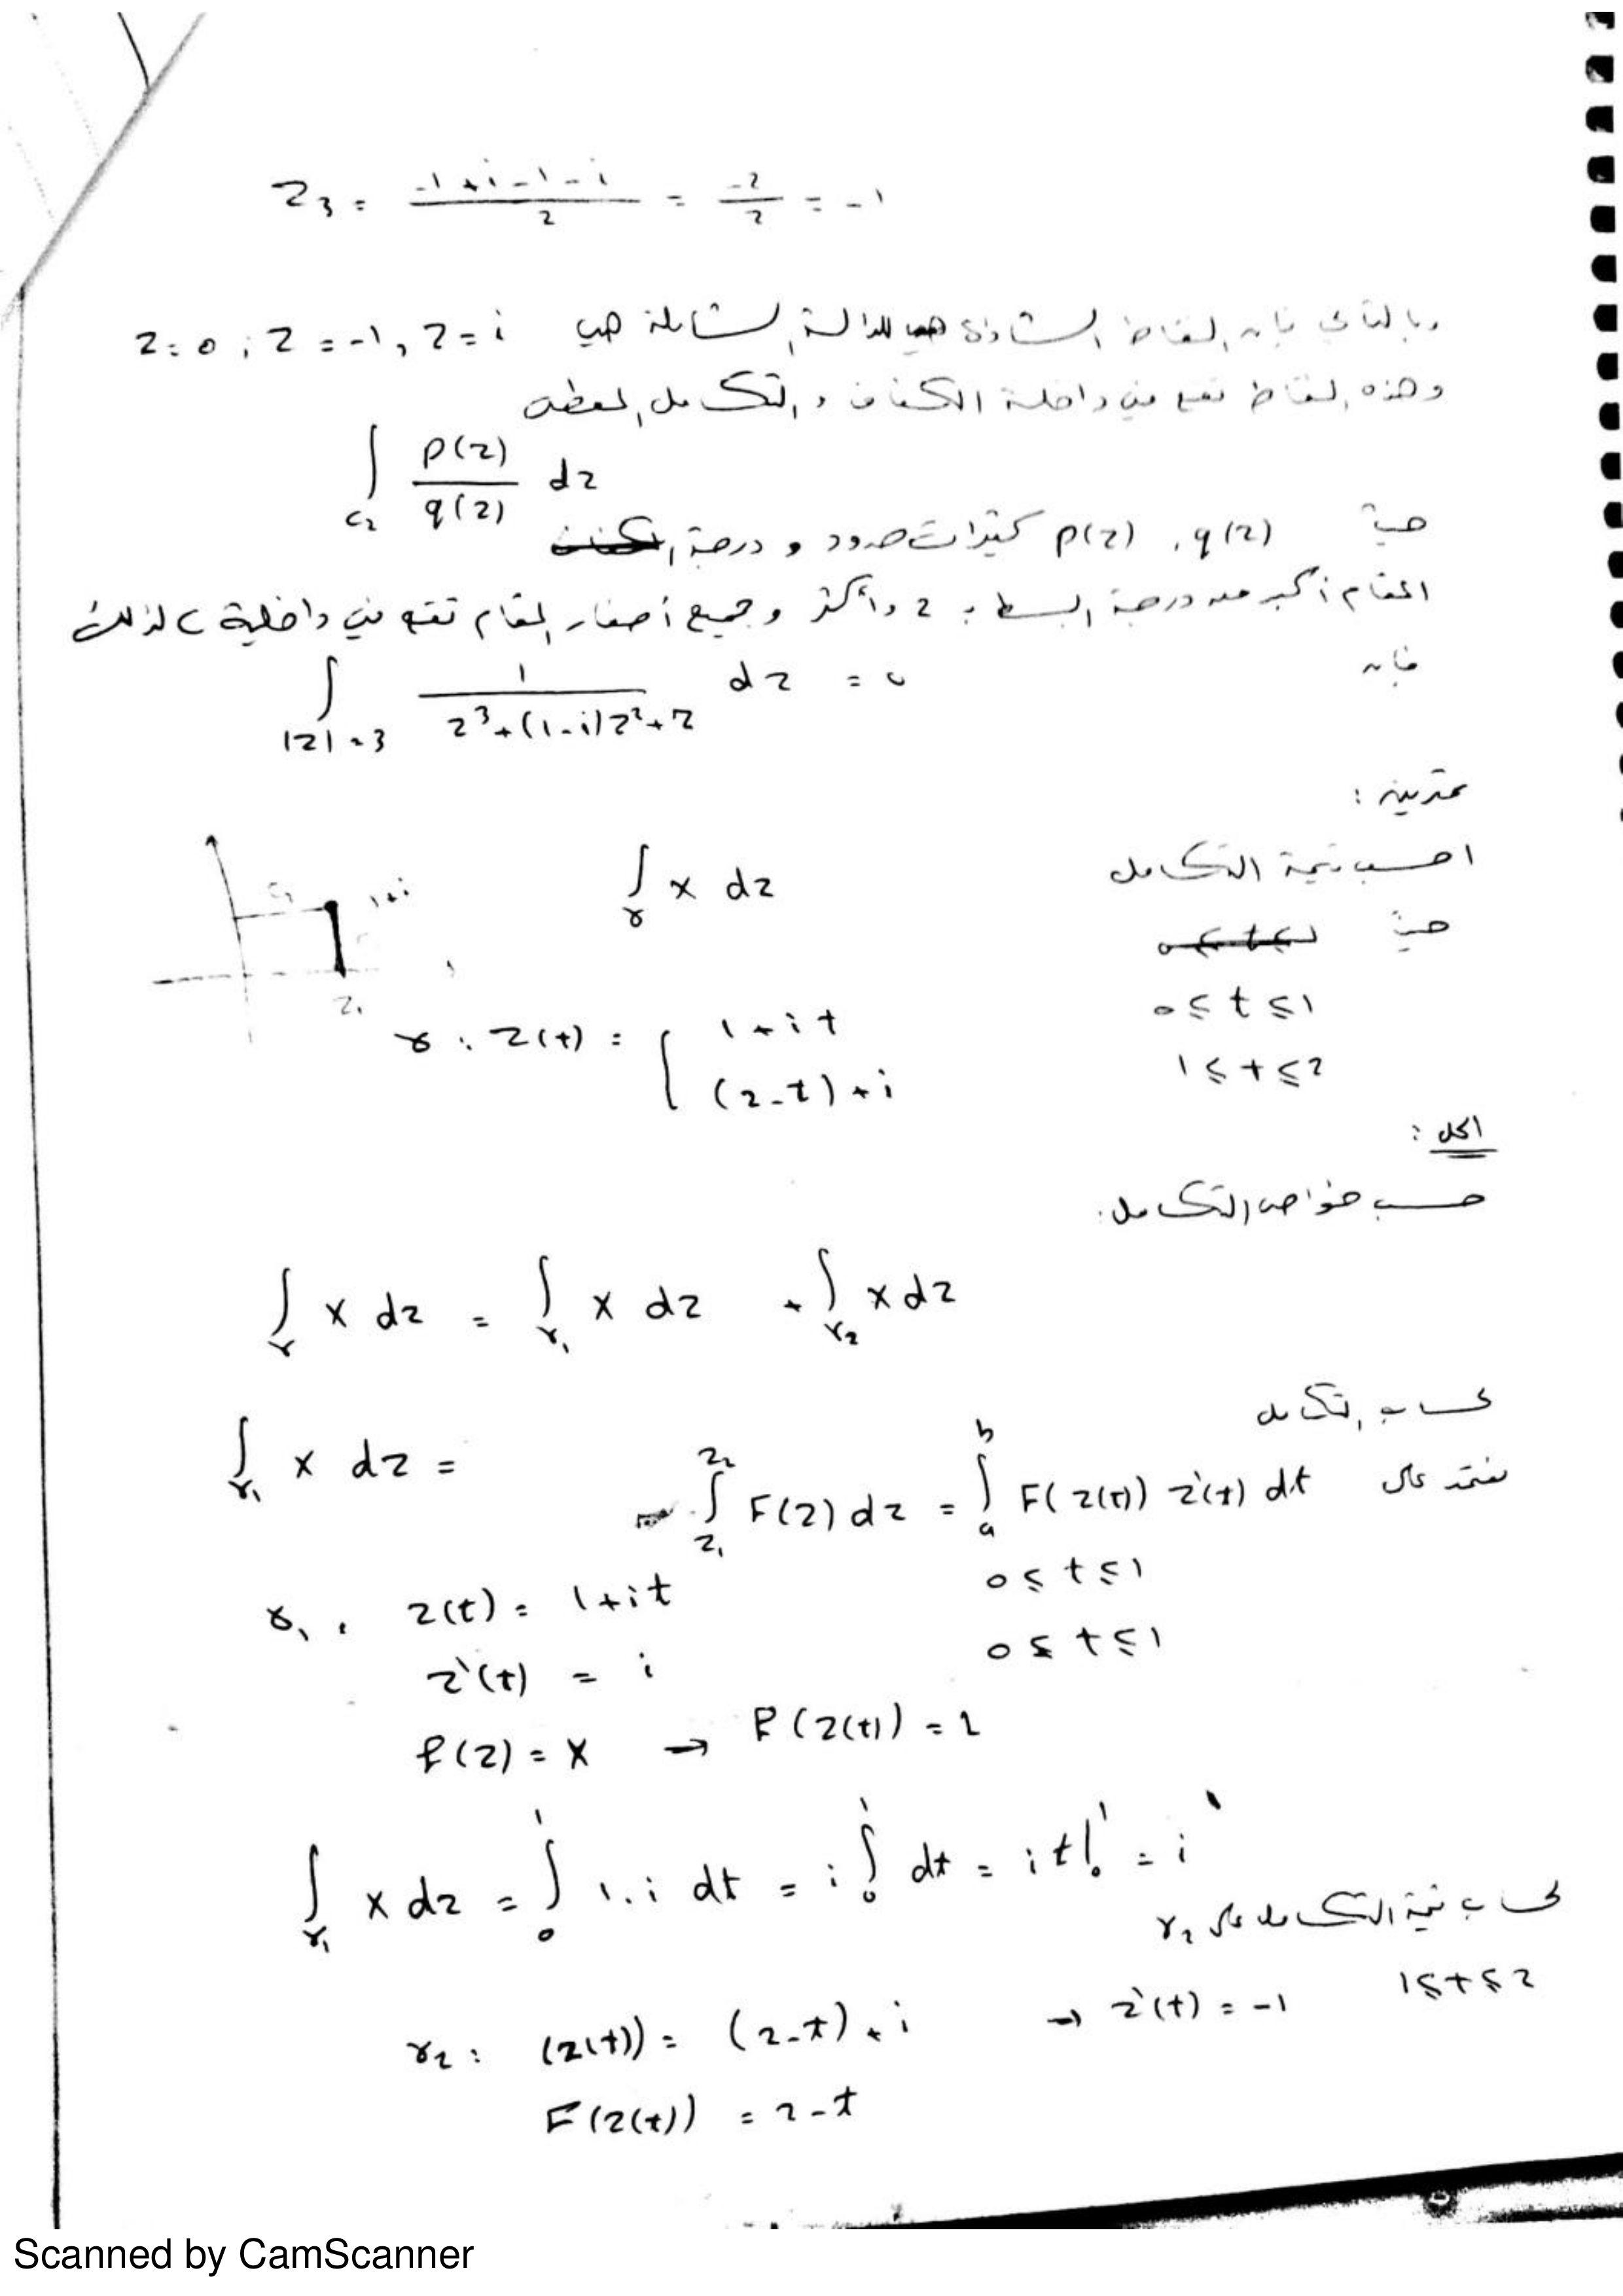 z₃ = (-1+i-1-i)/2 = -2/2 = -1
وبالتالي فإن النقاط الشاذة للدالة الشاملة هي z=0, z=-1, z=i
وهذه النقاط تقع في داخلية الكفاف والتكامل المعطى
∫_{c₂} p(z)/q(z) dz
حيث p(z), q(z) كثيرات حدود ودرجة
المقام أكبر من درجة البسط بـ 2 وأكثر وجميع أصفار المقام تقع في داخلية c لذلك
فإن ∫_{|z|=3} 1/(z³+(1-i)z²+z) dz = 0
تمرين :
احسب قيمة التكامل ∫_γ x dz
حيث
1+i
z₁
γ : z(t) = { 1+it 0≤t≤1
(2-t)+i 1≤t≤2
الحل :
حسب خواص التكامل:
∫_γ x dz = ∫_{γ₁} x dz + ∫_{γ₂} x dz
لحساب التكامل
∫_{γ₁} x dz =
نعتمد على ∫_{z₁}^{z₂} F(z) dz = ∫_a^b F(z(t)) z'(t) dt
γ₁ : z(t) = 1+it 0≤t≤1
z'(t) = i 0≤t≤1
f(z) = x → F(z(t)) = 1
∫_{γ₁} x dz = ∫_0^1 1.i dt = i ∫_0^1 dt = it|_0^1 = i
لحساب قيمة التكامل على γ₂
γ₂ : (z(t)) = (2-t)+i → z'(t) = -1 1≤t≤2
F(z(t)) = 2-t
Scanned by CamScanner